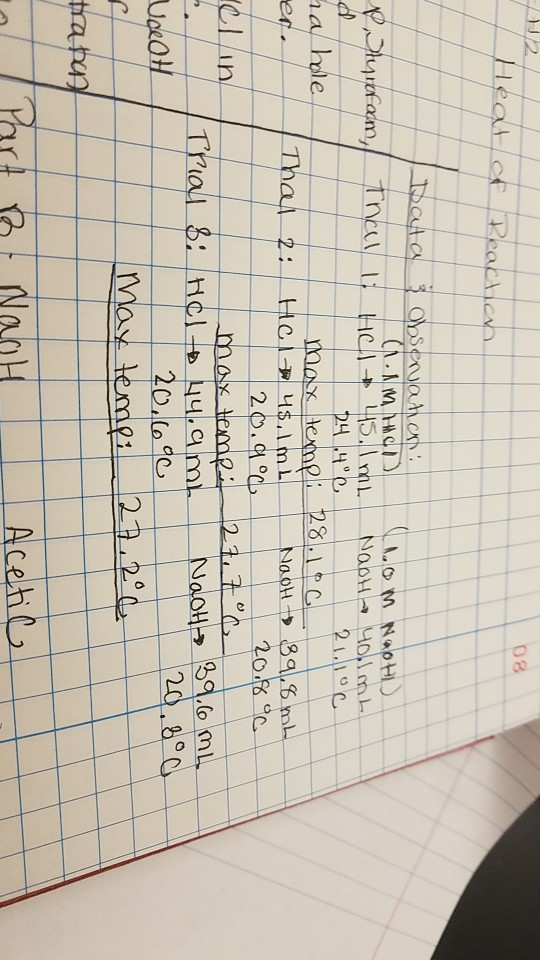 H2
08
Heat of Reaction
Data & Observation:
(1.1M HCl) (1.0 M NaOH)
Trial 1: HCl → 45.1mL NaOH → 40.1mL
24.4°C 21.1°C
max temp: 28.1°C
Trial 2: HCl → 45.1mL NaOH → 39.8mL
20.9°C 20.8°C
max temp: 27.7°C
Trial 3: HCl → 44.9mL NaOH → 39.6mL
20.6°C 20.8°C
Max temp: 27.2°C
Part B: NaOH Acetic
a hole
er.
HCl in
NaOH